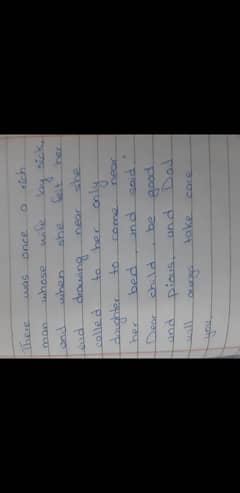 There was once a rich
man whose wife lay sick,
and when she felt her
end drawing near she
called to her only
daughter to come near
her bed, and said,
Dear child, be good
and pious, and Dad
will always take care
you.